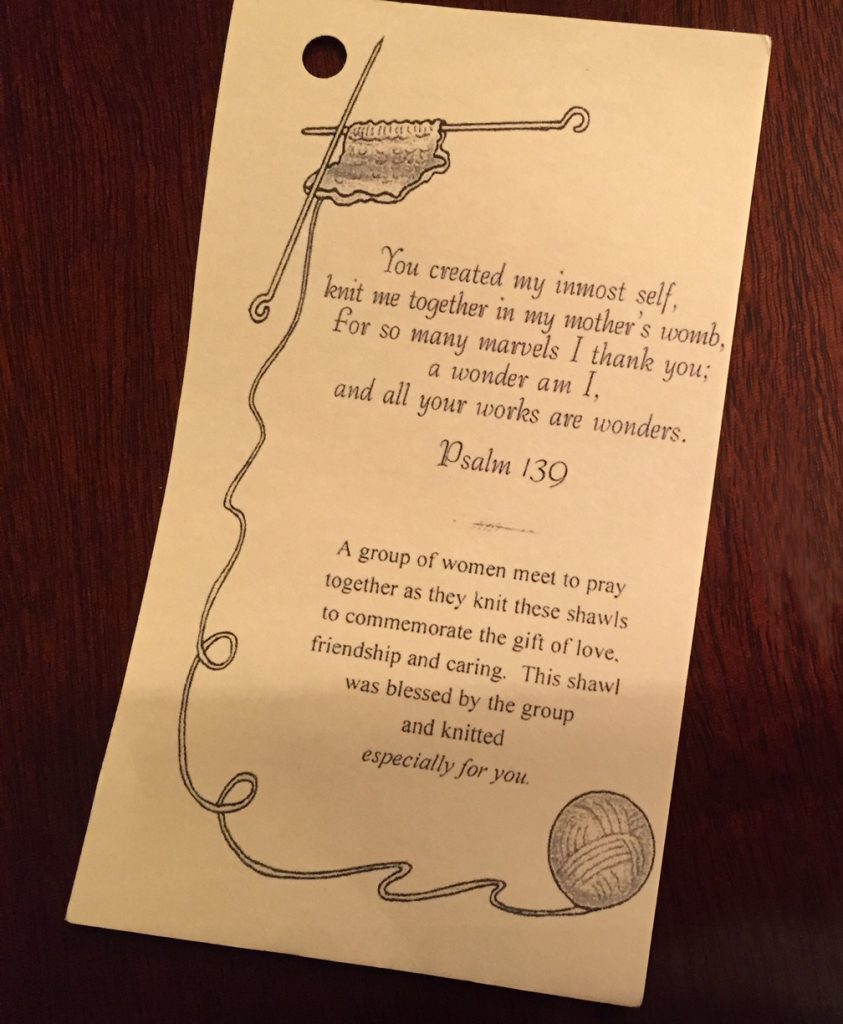 You created my inmost self,
knit me together in my mother's womb,
For so many marvels I thank you;
a wonder am I,
and all your works are wonders.
Psalm 139
A group of women meet to pray
together as they knit these shawls
to commemorate the gift of love,
friendship and caring. This shawl
was blessed by the group
and knitted
especially for you.